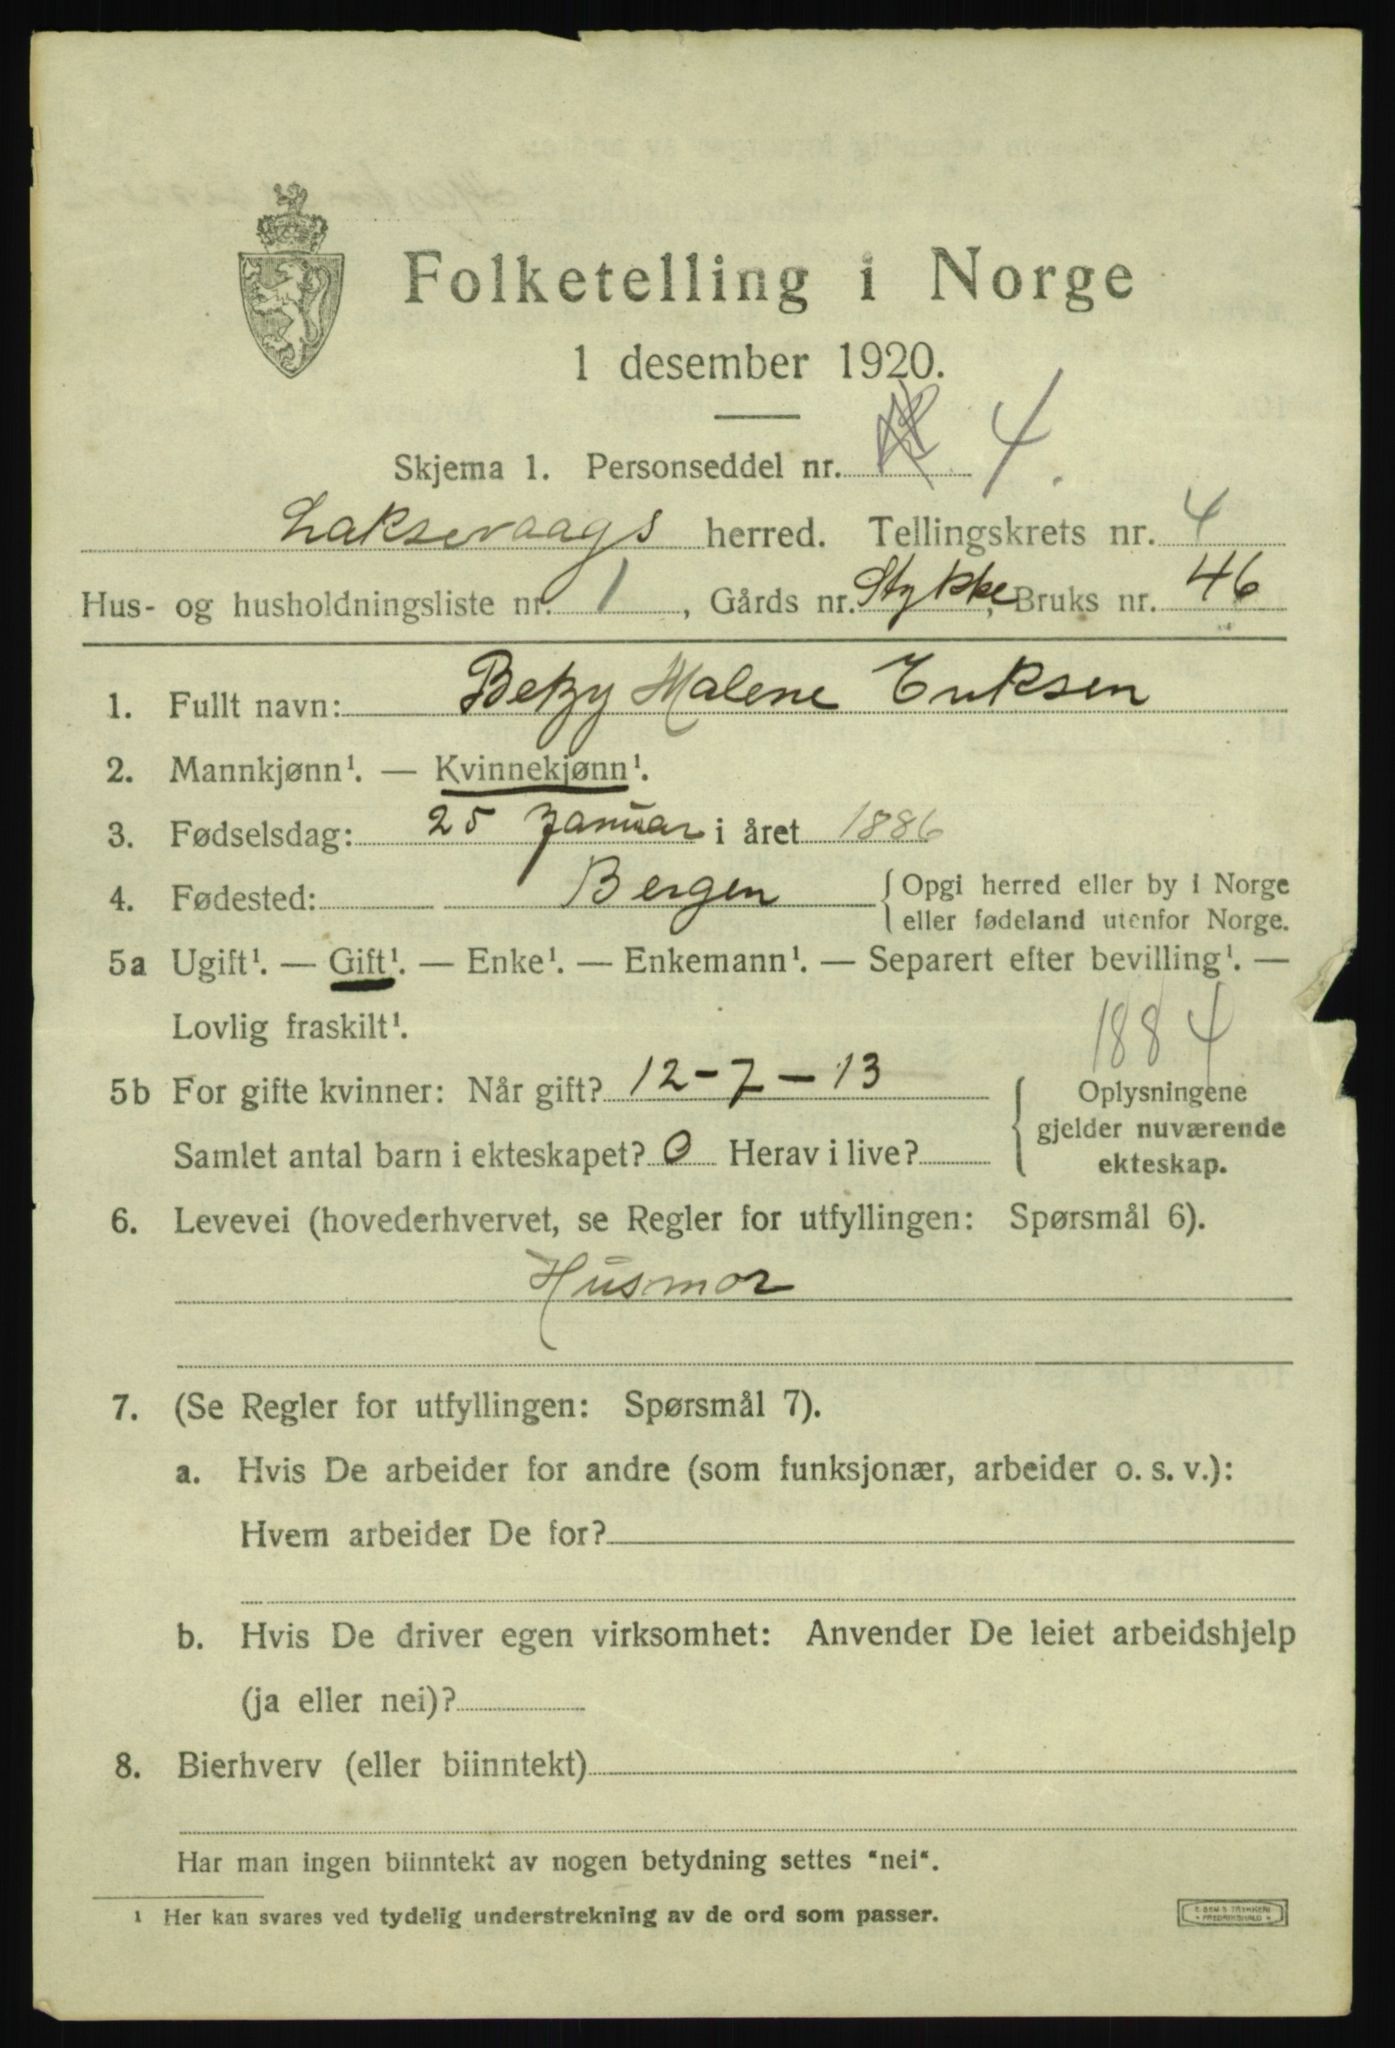 Folketelling i Norge
1 desember 1920.
Skjema 1. Personseddel nr. 4.
Laksevaags herred. Tellingskrets nr. 4
Hus- og husholdningsliste nr. 1, Gårds nr. Stykke, Bruks nr. 46
1. Fullt navn: Betzy Malene Eriksen
2. Mannkjønn¹. — Kvinnekjønn¹.
3. Fødselsdag: 25 Januar i året 1886
4. Fødested: Bergen { Opgi herred eller by i Norge
eller fødeland utenfor Norge.
5a Ugift¹. — Gift¹. — Enke¹. — Enkemann¹. — Separert efter bevilling¹. —
Lovlig fraskilt¹.
1884
5b For gifte kvinner: Når gift? 12-7-13
Samlet antal barn i ekteskapet? 0 Herav i live?
{ Oplysningene
gjelder nuværende
ekteskap.
6. Levevei (hovederhvervet, se Regler for utfyllingen: Spørsmål 6).
Husmor
7. (Se Regler for utfyllingen: Spørsmål 7).
a. Hvis De arbeider for andre (som funksjonær, arbeider o. s. v.):
Hvem arbeider De for?
b. Hvis De driver egen virksomhet: Anvender De leiet arbeidshjelp
(ja eller nei)?
8. Bierhverv (eller biinntekt)
Har man ingen biinntekt av nogen betydning settes "nei".
¹ Her kan svares ved tydelig understrekning av de ord som passer.